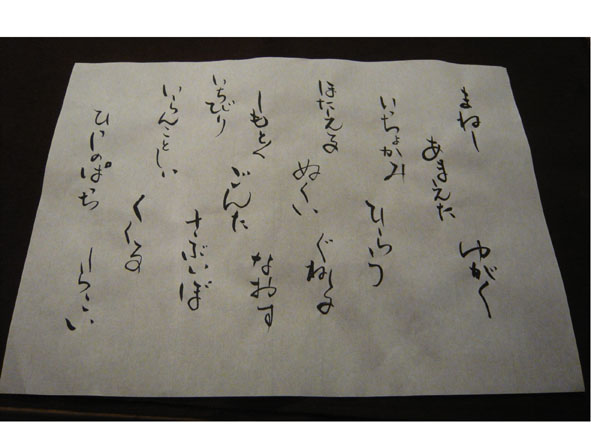 まねし
ゆがく
あまえた
いっちょかみ
ひらう
ほたえる
ぬくい
ぐねる
しもとく
ごんた
なおす
いちびり
さぶいぼ
いらんことしい
くくる
しらこい